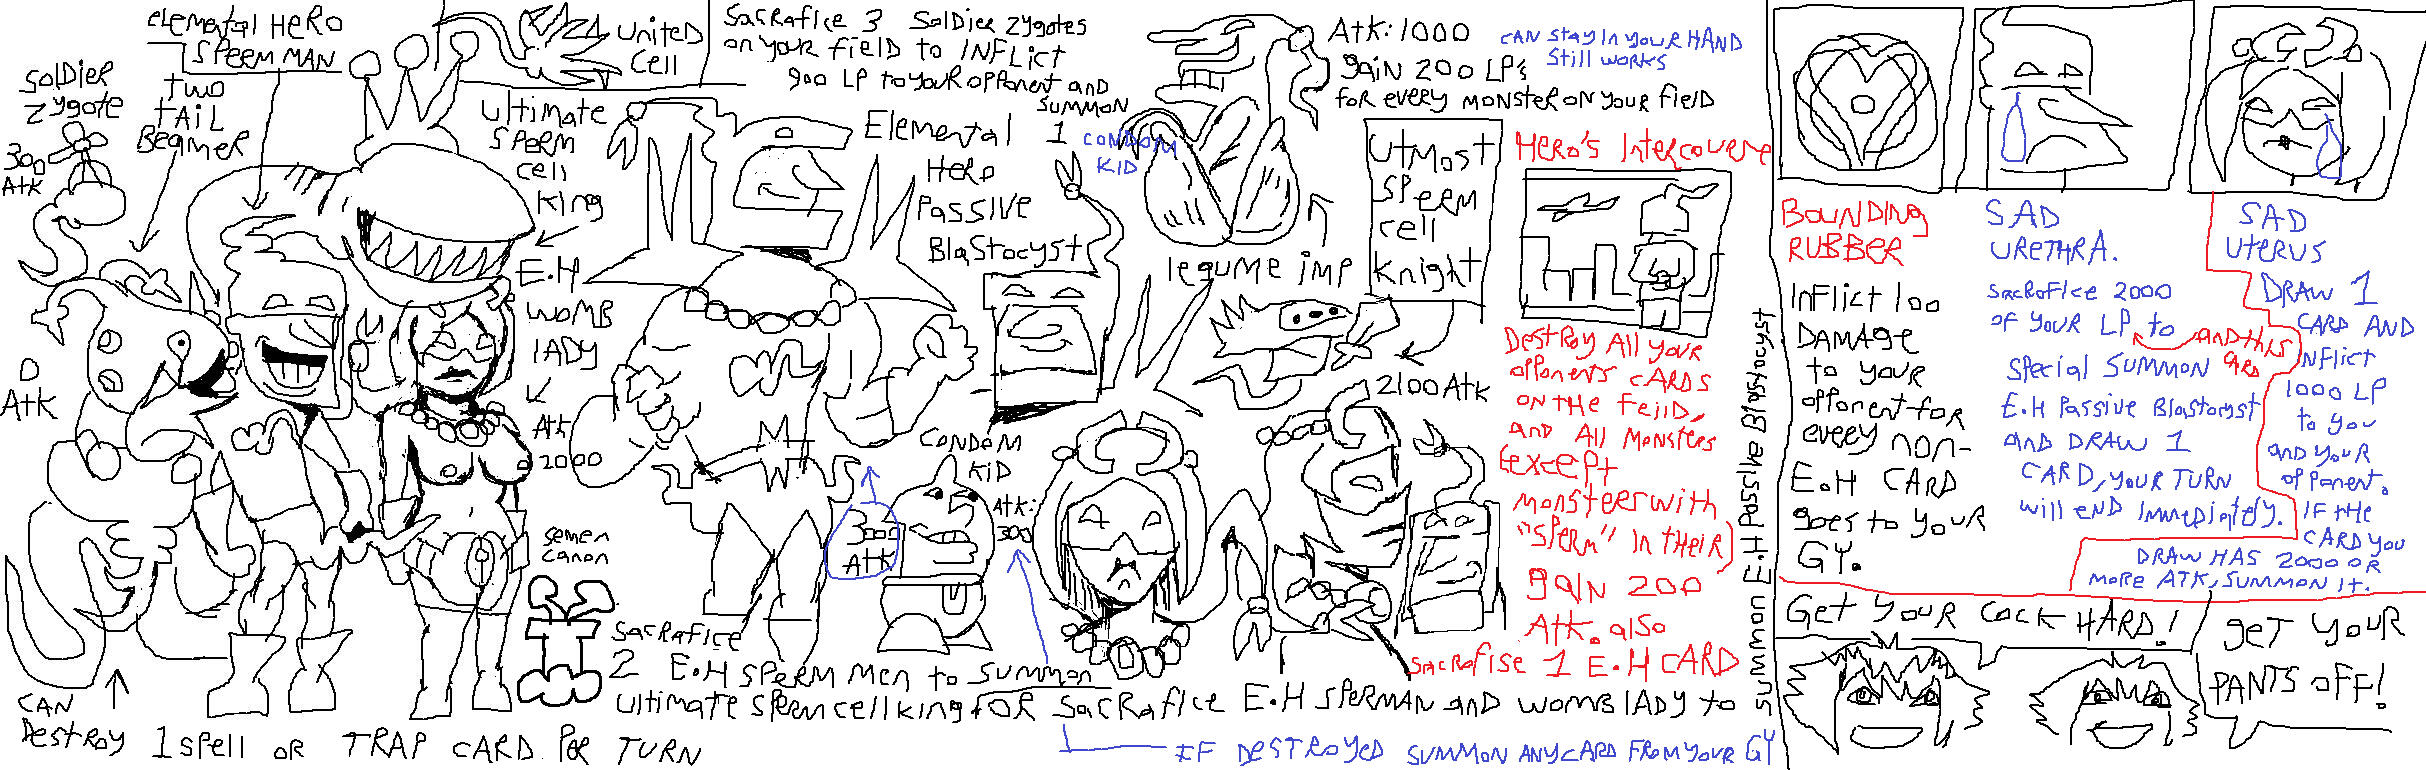 elemental Hero
SPERM MAN
Soldier
Zygote
300
Atk
two
tAiL
Beamer
United
Cell
Sacrafice 3 Soldier zygotes
on your field to INFlict
900 LP to your opponent and
summon
1
CONDOM
KID
Ultimate
SPERM
cell
king
E.H
WOMB
lADY
Atk
2000
Elemental
Hero
Passive
Blastocyst
Atk: 1000
gain 200 LP's
for every monster on your field
CAN STAY IN YOUR HAND
Still works
legume imp
UTMOST
SPERM
cell
knight
2100 Atk
O
Atk
CAN
DestRoy 1 spell OR TRAP CARD PER TURN
semen
canon
300
Atk
CONDOM
KID
Atk:
300
SACRAFICE
2 E.H SPERM Men to Summon
ultimate sperm cell king FOR SACRAFICE E.H SPERMAN and WOMB LADY to
summon E.H Passive Blastocyst
IF DESTROYED SUMMON ANY CARD FROM YOUR GY
Hero's Intercourse
Destroy All your
opponents cARDS
ON THE FeilD,
and All Monsters
(except
monsteerwith
"SPERM" IN THEIR)
gain 200
Atk. also
SACRAFISE 1 E.H CARD
BOUNDING
RUBBER
INFlict 100
DAMAge
to your
opponent for
every non-
E.H CARD
goes to your
GY.
SAD
URETHRA.
SACRAFICE 2000
OF YOUR LP to
AND THIS
CARD
Special Summon
E.H Passive Blastocyst
AND DRAW 1
CARD, YOUR TURN
will END Immediately.
SAD
UTERUS
DRAW 1
CARD AND
INFlict
1000 LP
to you
AND YOUR
OPPONENT.
IF the
CARD YOU
DRAW HAS 2000 OR
MORE ATK, SUMMON IT.
Get YOUR COCK HARD!
get YOUR
PANTS OFF!